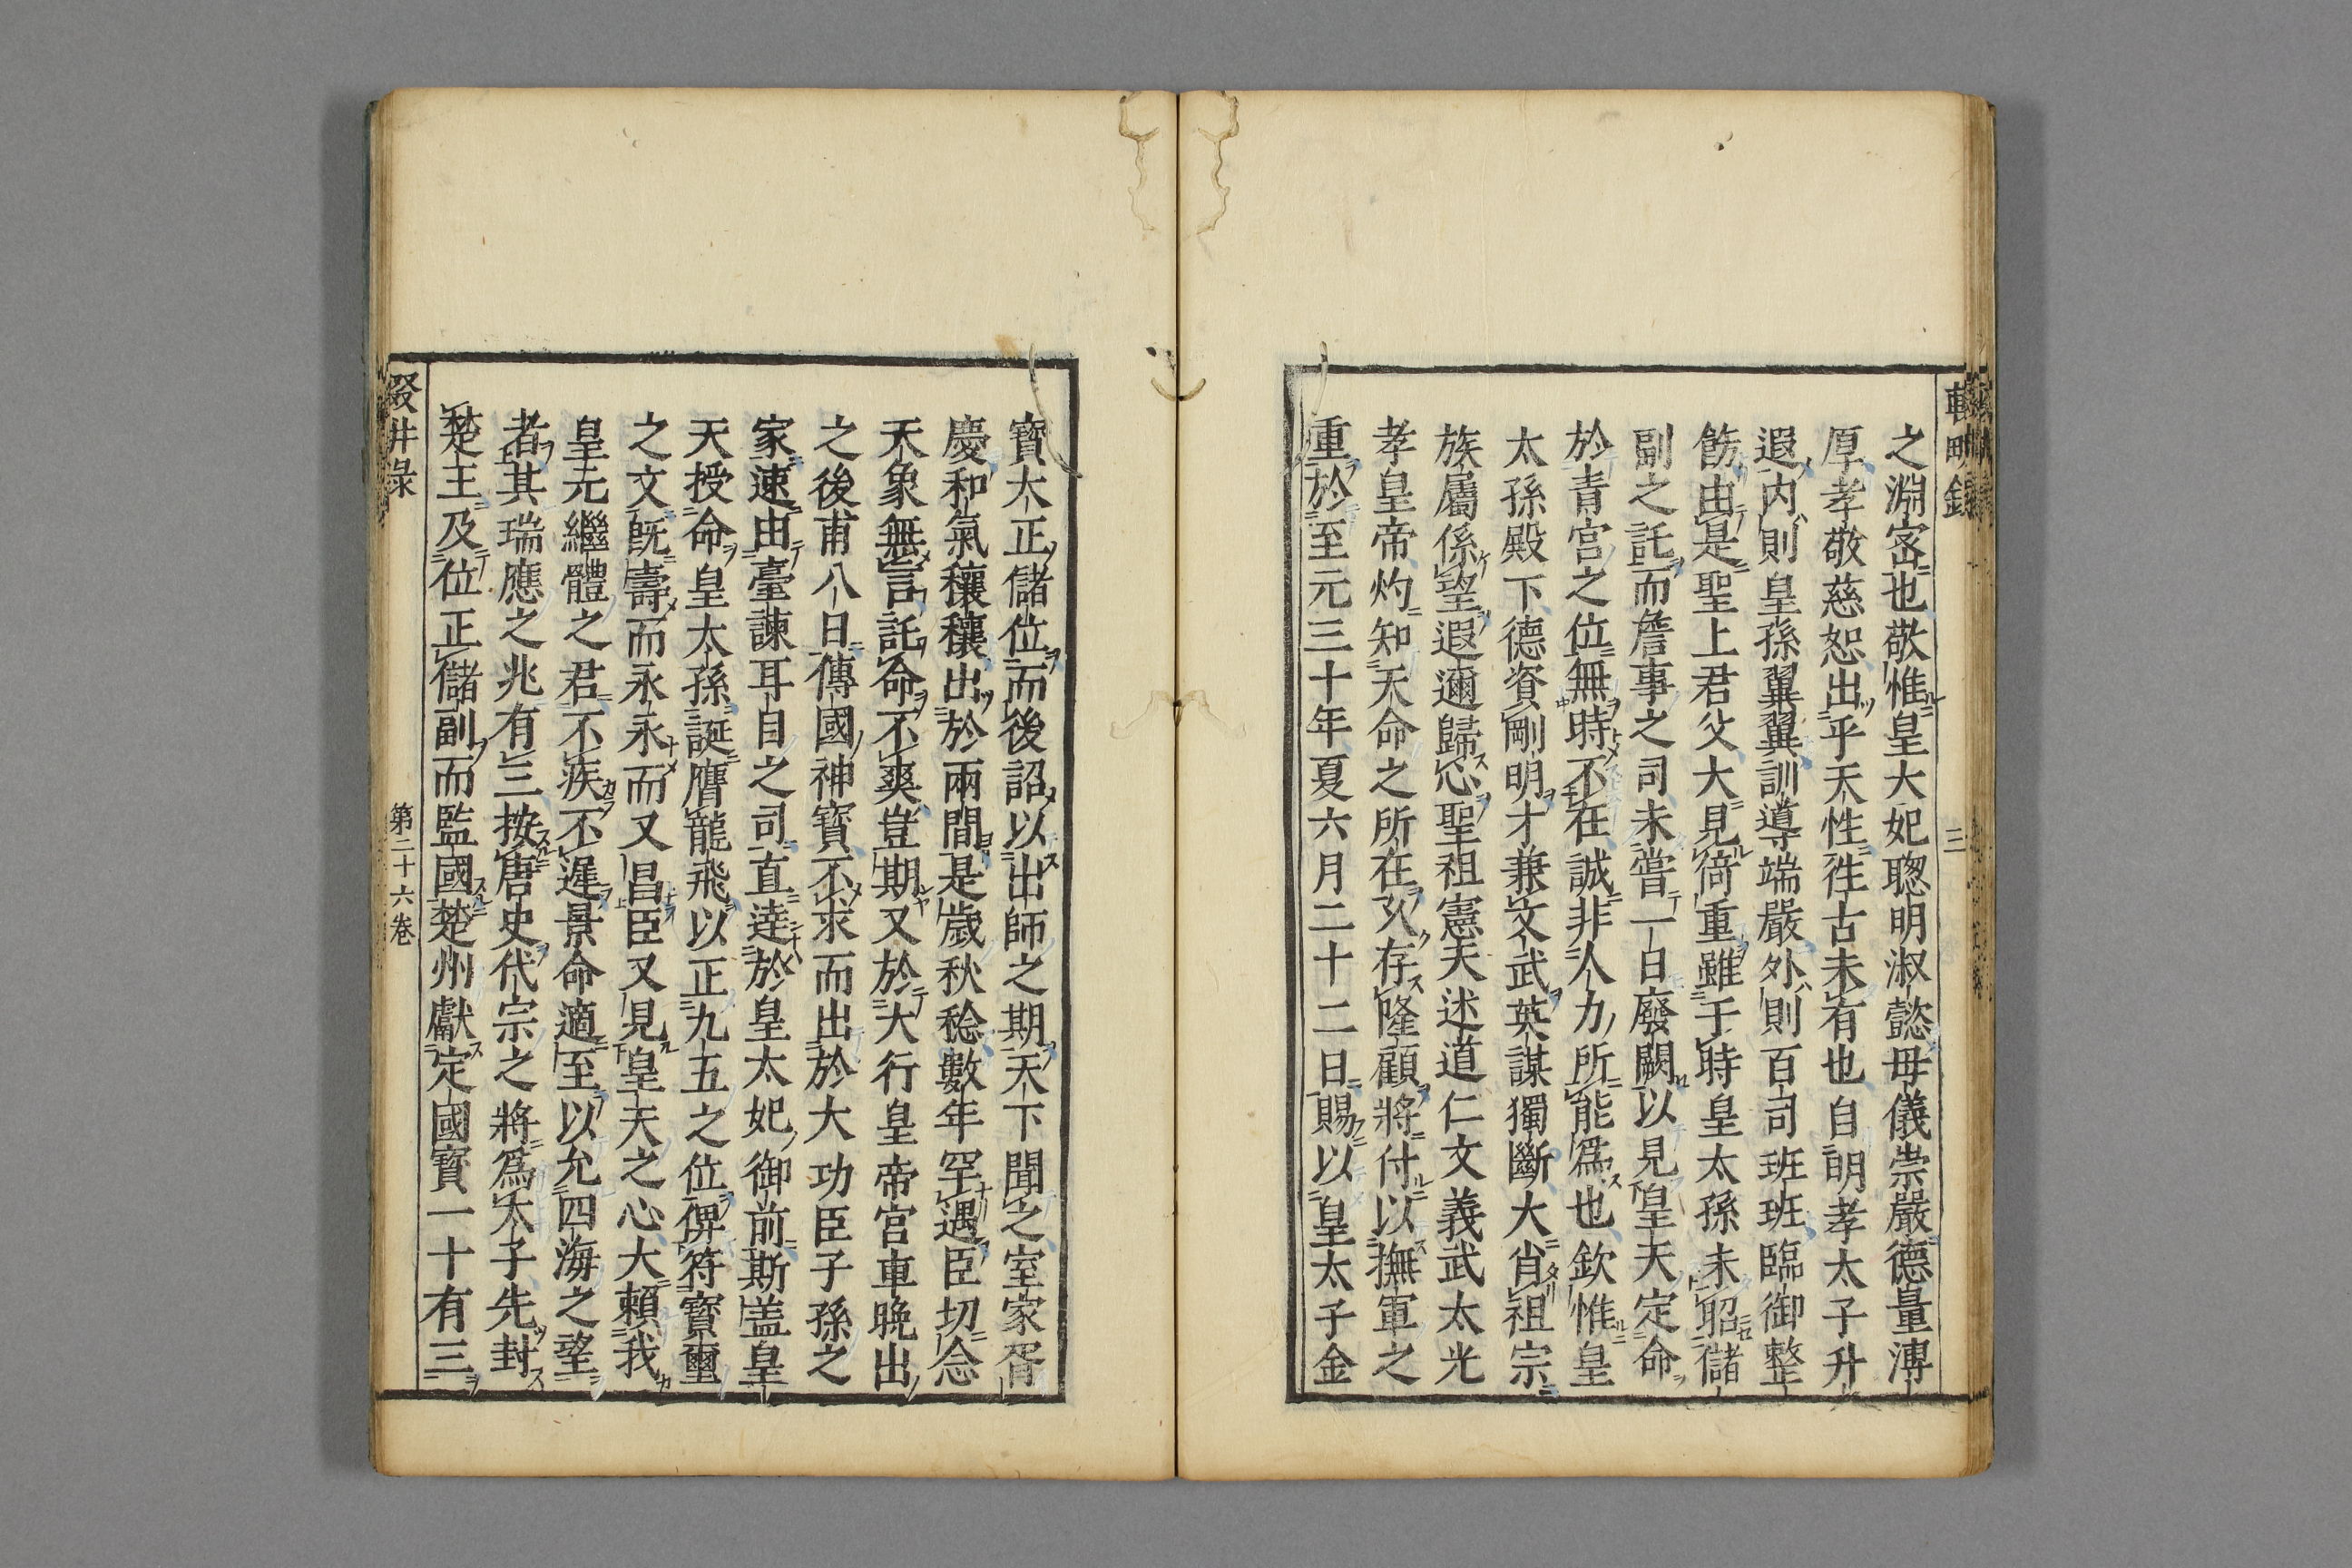 之淵宻也敬惟皇大妃聦明淑懿毋儀崇嚴德量溥
厚孝敬慈恕出乎天性徃古未有也自明孝太子升
遐内則皇孫翼翼訓導端嚴外則百司班班臨御整
飭由是聖上君父大見倚重雖于時皇太孫未昭儲
副之託而詹事之司未嘗一日廢闕以見皇天定命
於青宫之位無時不在誠非人力所能爲也欽惟皇
太孫殿下德資剛明才兼文武英謀獨斷大肖祖宗
族屬係望遐邇歸心聖祖憲天述道仁文義武太光
孝皇帝灼知天命之所在久存隆顧將付以撫軍之
重於至元三十年夏六月二十二日賜以皇太子金
寶大正儲位而後詔以出師之期天下聞之室家胥
慶和氣穰穰出於兩間是歳秋稔數年罕遇臣切念
天象無言託命不爽豈期又於大行皇帝宫車晚出
之後甫八日傳國神寶不求而出於大功臣子孫之
家速由臺諫耳目之司直逹於皇太妃御前斯盖皇
天授命皇太孫誕膺龍飛以正九五之位俾符寶璽
之文既壽而永永而又昌臣又見皇天之心大頼我
皇元繼體之君不疾不遲景命適至以允四海之望
者其瑞應之兆有三按唐史代宗之將爲太子先封
楚王及位正儲副而監國楚州獻定國寶一十有三
三
第二十六巻